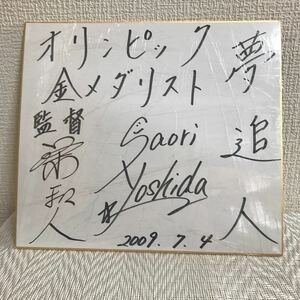 夢追人
オリンピック
金メダリスト
監督
栄和人
Saori
Yoshida
2009.7.4